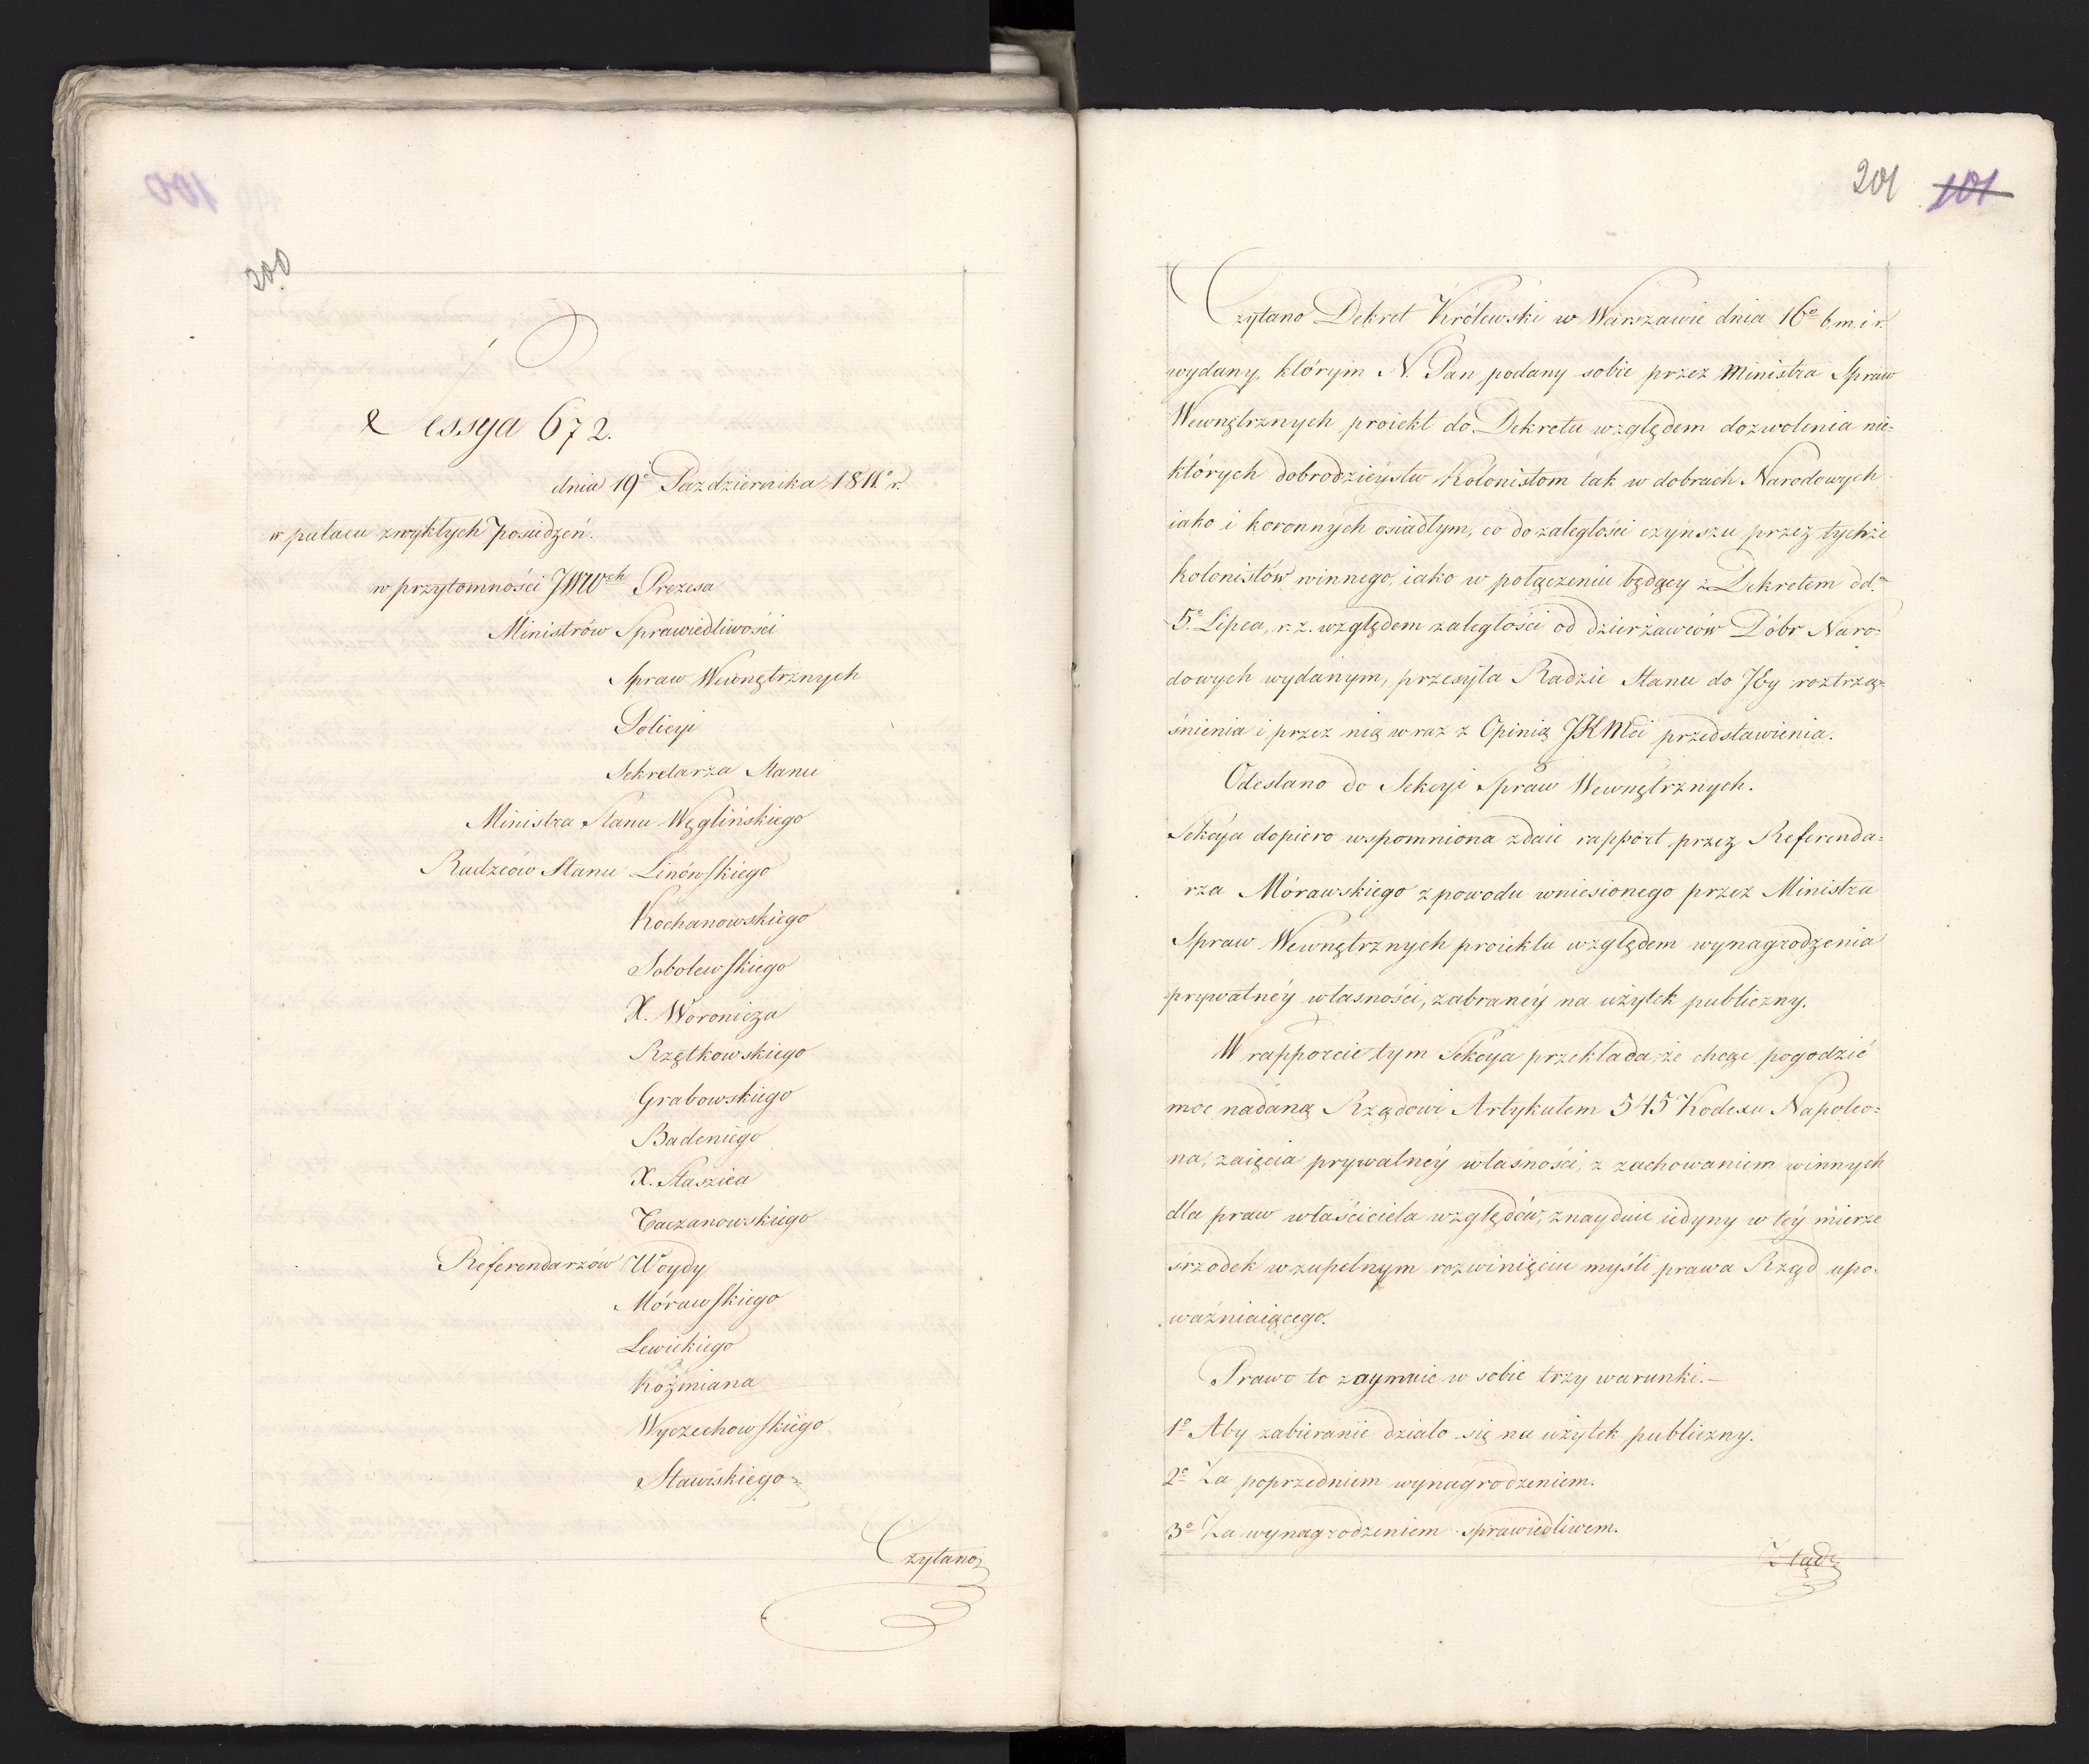 100
200
Sessya 672.
dnia 19º Pazdziernika 1811º r.
w pałacu zwykłych Posiedzeń.
w przytomności JWWch Prezesa
Ministrów Sprawiedliwości
Spraw Wewnętrznych
Policyi
Sekretarza Stanu
Ministra Stanu Węglińskiego
Radzców Stanu Linówskiego
Kochanowskiego
Sobolewskiego
X. Woronicza
Rzętkowskiego
Grabowskiego
Badeniego
X. Staszica
Taczanowskiego
Referendarzów Woydy
Mórawskiego
Lewickiego
Koźmiana
Wyczechowskiego
Stawiskiego
Czytano
201 101
Czytano Dekret Królewski w Warszawie dnia 16º b. m. i r.
wydany, którym N. Pan podany sobie przez Ministra Spraw
Wewnętrznych proiekt do Dekretu względem dozwolenia nie-
których dobrodzieystw Kolonistom tak w dobrach Narodowych
iako i koronnych osiadłym, co do zaległości czynszu przez tychże
kolonistów winnego, iako w połączeniu będący z Dekretem dd.
5º Lipca, r. z. względem zaległości od dzierżawców Dóbr Naro-
dowych wydanym, przesyła Radzie Stanu do Jéy roztrzą-
śnienia i przez nią wraz z Opinią JKMci przedstawienia.
Odesłano do Sekcyi Spraw Wewnętrznych.
Sekcya dopiero wspomniona zdaie rapport przez Referenda-
rza Mórawskiego z powodu wniesionego przez Ministra
Spraw Wewnętrznych proiektu względem wynagrodzenia
prywatnéy własności, zabranéy na użytek publiczny.
W rapporcie tym Sekcya przekłada, że chcąc pogodzić
moc nadaną Rządowi Artykułem 545 Kodexu Napoleo-
na, zaięcia prywatnéy własności, z zachowaniem winnych
dla praw właściciela względów, znayduie iedyny w téy mierze
śrzodek w zupełnym rozwinięciu myśli prawa Rząd upo-
ważniaiącego.
Prawo to zaymuie w sobie trzy warunki.—
1º Aby zabieranie działo się na użytek publiczny.
2º Za poprzedniem wynagrodzeniem.
3º Za wynagrodzeniem sprawiedliwem.
Ztąd